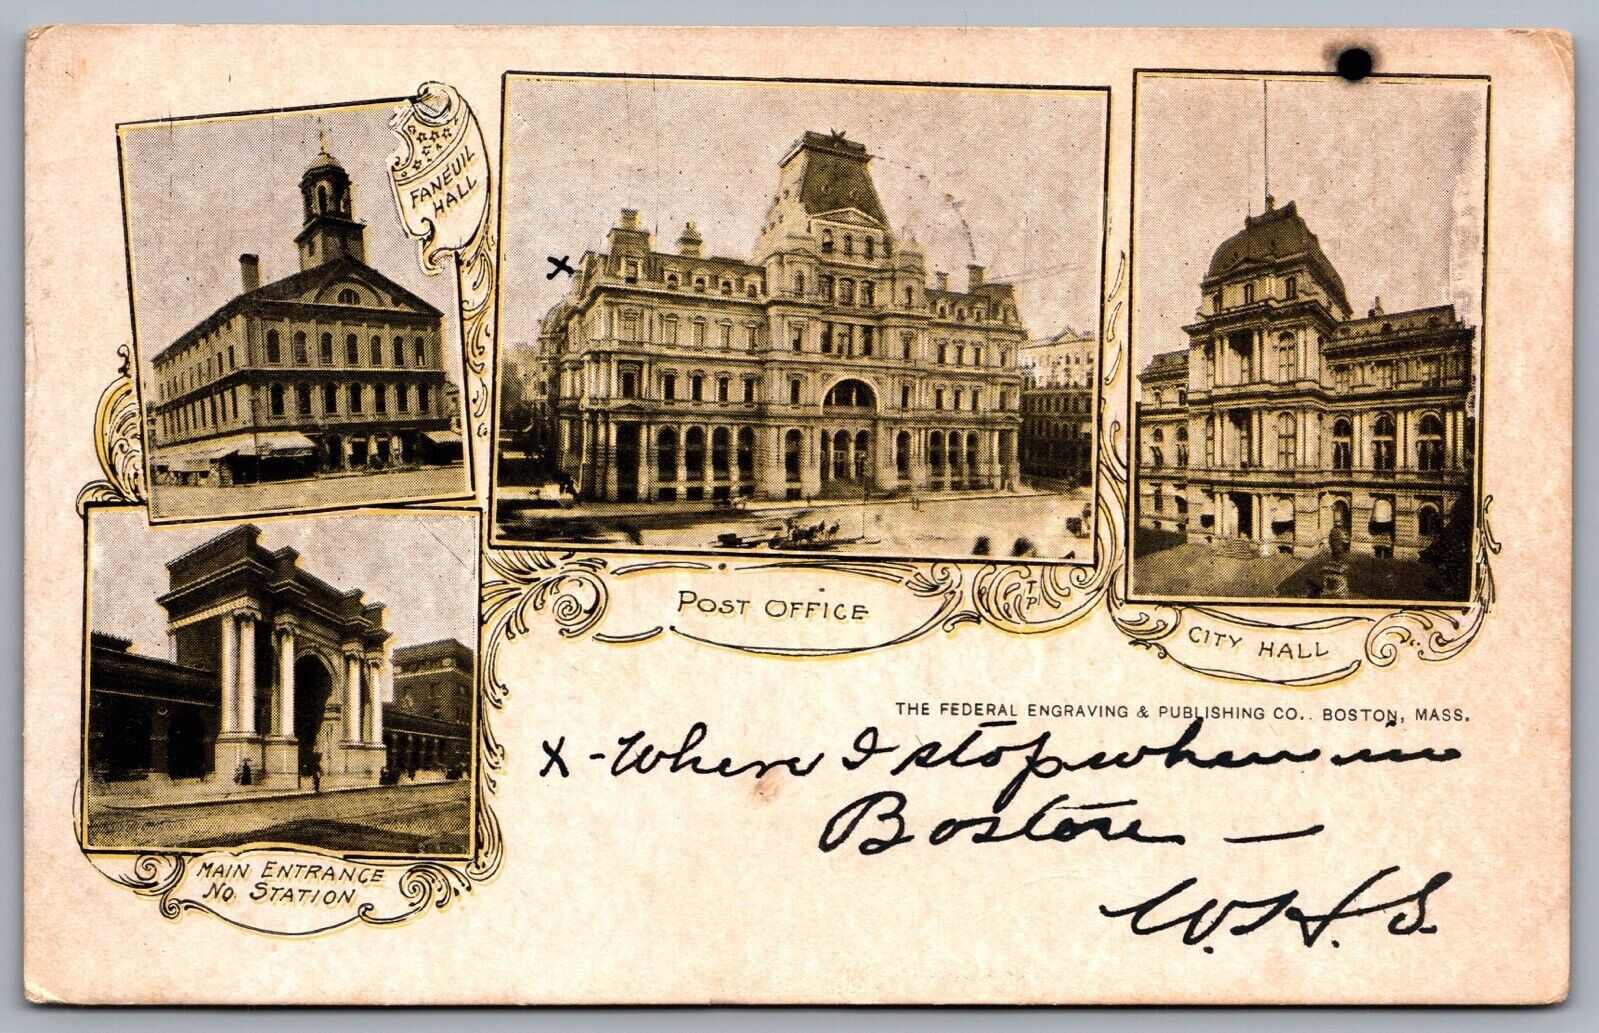 FANEUIL
HALL
X
POST OFFICE
TP
CITY HALL
MAIN ENTRANCE
NO. STATION
THE FEDERAL ENGRAVING & PUBLISHING CO., BOSTON, MASS.
X - Where I stop when in
Boston —
W.H.S.